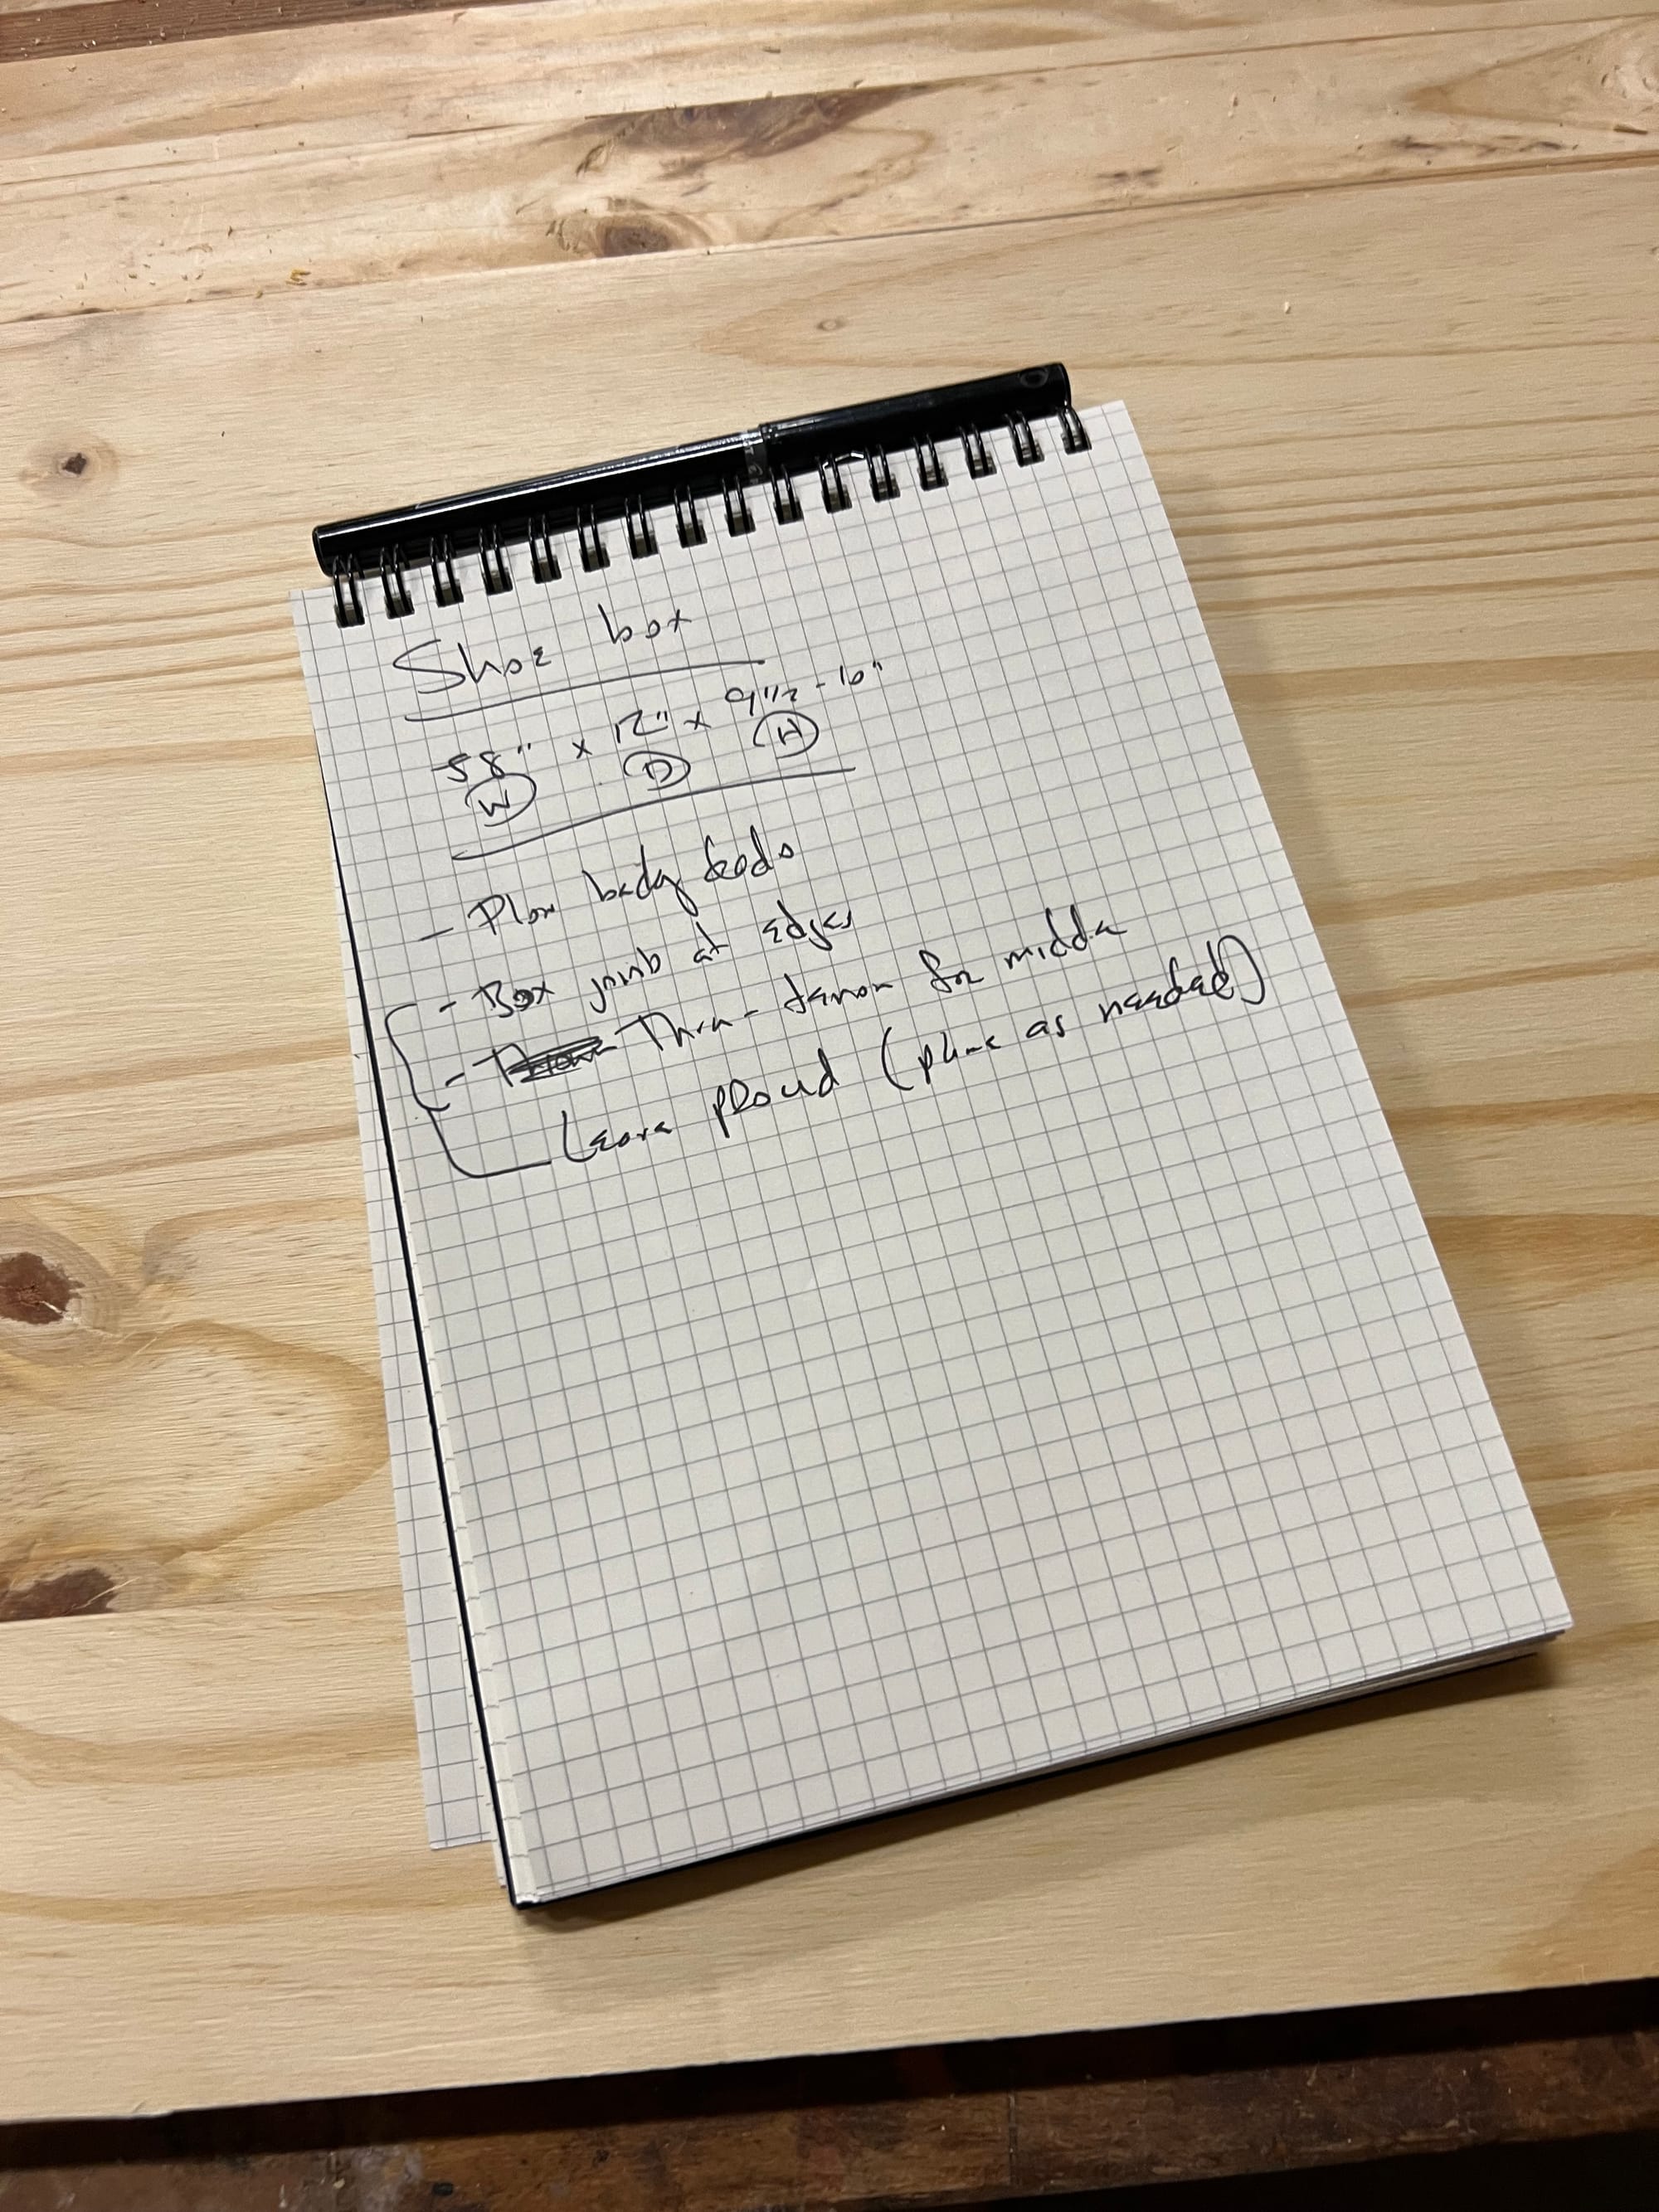 Shoe box
58" x 12" x 9 1/2 - 10"
W D H
- Plan body
- Box joints at edges
- Thru-tenon for middle
Leave proud (plane as needed)